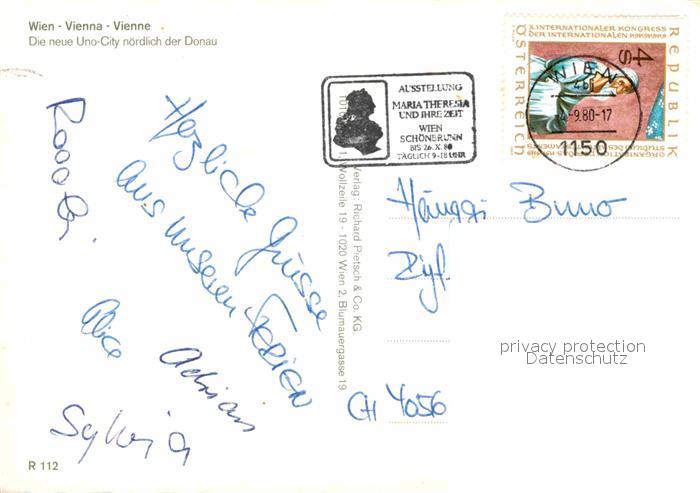 Wien - Vienna - Vienne
Die neue Uno-City nördlich der Donau
X. INTERNATIONALER KONGRESS
DER INTERNATIONALEN
REPUBLIK
ÖSTERREICH
4s
WIEN
-9.80-17
1150
AUSSTELLUNG
MARIA THERESIA
UND IHRE ZEIT
WIEN
SCHÖNBRUNN
BIS 26.X.80
TÄGLICH 9-18 UHR
Herzliche Grüsse
aus unseren Ferien
Alice
Adrian
Sylvia
Verlag: Richard Pietsch & Co. KG.
Wollzeile 19 - 1020 Wien 2, Blumauergasse 19
Hänggi Bruno
CH 4056
privacy protection
Datenschutz
R 112